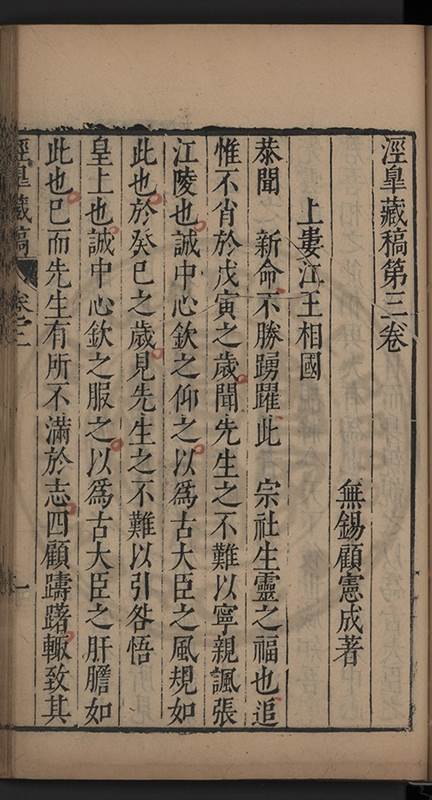 涇臯藏稿第三卷
無錫顧憲成著
上婁江王相國
恭聞 新命不勝踴躍此 宗社生靈之福也追
惟不肖於戊寅之歲聞先生之不難以寧親諷張
江陵也誠中心欽之仰之以爲古大臣之風規如
此也於癸巳之歲見先生之不難以引咎悟
皇上也誠中心欽之服之以爲古大臣之肝膽如
此也已而先生有所不滿於志四顧躊躇輙致其
涇臯藏稿
卷之三
一